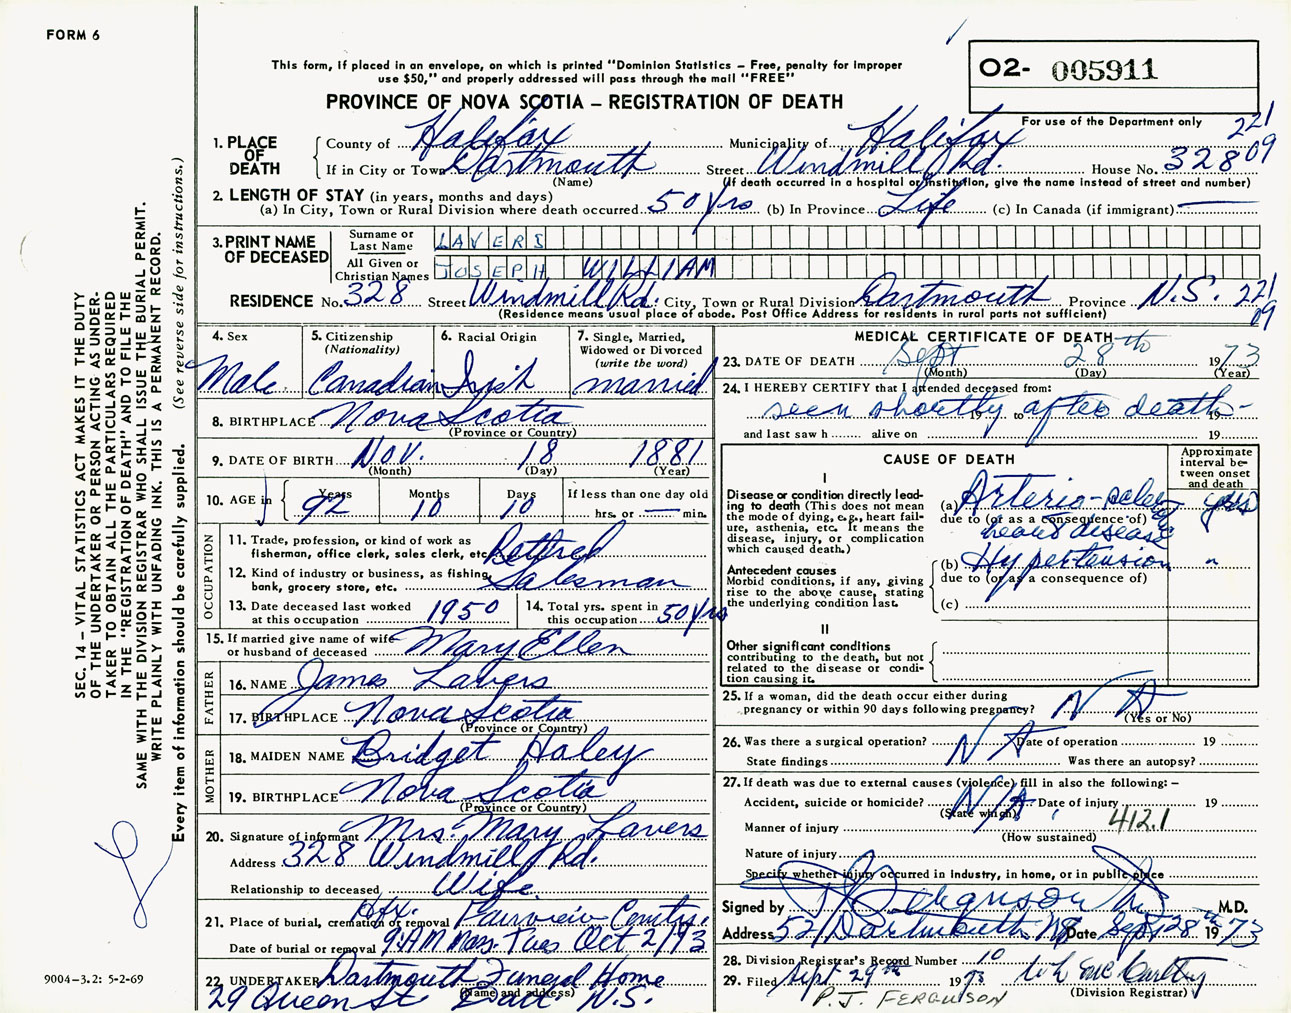 FORM 6
This form, if placed in an envelope, on which is printed "Dominion Statistics – Free, penalty for improper
use $50," and properly addressed will pass through the mail "FREE"
O2- 005911
For use of the Department only
PROVINCE OF NOVA SCOTIA – REGISTRATION OF DEATH
221
09
1. PLACE OF DEATH County of Halifax Municipality of Halifax
If in City or Town Dartmouth Street Windmill Rd. House No. 328
(Name) (If death occurred in a hospital or institution, give the name instead of street and number)
2. LENGTH OF STAY (in years, months and days)
(a) In City, Town or Rural Division where death occurred 50 yrs (b) In Province Life (c) In Canada (if immigrant) —
3. PRINT NAME OF DECEASED
Surname or Last Name LAVERS
All Given or Christian Names JOSEPH WILLIAM
RESIDENCE No. 328 Street Windmill Rd. City, Town or Rural Division Dartmouth Province N.S. 221
09
(Residence means usual place of abode. Post Office Address for residents in rural parts not sufficient)
4. Sex Male
5. Citizenship (Nationality) Canadian
6. Racial Origin Irish
7. Single, Married, Widowed or Divorced (write the word) married
8. BIRTHPLACE Nova Scotia
(Province or Country)
9. DATE OF BIRTH Nov. 18 1881
(Month) (Day) (Year)
10. AGE in Years 92 Months 10 Days 10 If less than one day old
hrs. or — min.
OCCUPATION
11. Trade, profession, or kind of work as
fisherman, office clerk, sales clerk, etc. Retired
12. Kind of industry or business, as fishing,
bank, grocery store, etc. Salesman
13. Date deceased last worked
at this occupation 1950
14. Total yrs. spent in
this occupation 50 yrs
15. If married give name of wife
or husband of deceased Mary Ellen
FATHER
16. NAME James Lavers
17. BIRTHPLACE Nova Scotia
(Province or Country)
MOTHER
18. MAIDEN NAME Bridget Haley
19. BIRTHPLACE Nova Scotia
(Province or Country)
20. Signature of informant Mrs. Mary Lavers
Address 328 Windmill Rd.
Relationship to deceased Wife
21. Place of burial, cremation or removal Hfx. Fairview
Date of burial or removal 9 AM Mass Tues Oct 2/73
22 UNDERTAKER Dartmouth Funeral Home
29 Queen St Dart N.S.
(Name and address)
MEDICAL CERTIFICATE OF DEATH
23. DATE OF DEATH Sept 28th 1973
(Month) (Day) (Year)
24. I HEREBY CERTIFY that I attended deceased from:
19 to 19
seen shortly after death -
and last saw h alive on 19
CAUSE OF DEATH
Approximate interval between onset and death
I
Disease or condition directly leading to death (This does not mean the mode of dying, e.g., heart failure, asthenia, etc. It means the disease, injury, or complication which caused death.)
(a)
due to (or as a consequence of)
heart disease
Antecedent causes
Morbid conditions, if any, giving rise to the above cause, stating the underlying condition last.
(b) Hypertension "
due to (or as a consequence of)
(c)
II
Other significant conditions
contributing to the death, but not related to the disease or condition causing it.
25. If a woman, did the death occur either during
pregnancy or within 90 days following pregnancy? N A
(Yes or No)
26. Was there a surgical operation? N A Date of operation 19
State findings Was there an autopsy?
27. If death was due to external causes (violence) fill in also the following: –
Accident, suicide or homicide? N/A Date of injury 19
(State which)
412.1
Manner of injury
(How sustained)
Nature of injury
Specify whether injury occurred in Industry, in home, or in public place
Signed by Ferguson M.D.
Address 52 Dartmouth NS Date Sept 28th 1973
28. Division Registrar's Record Number 10
29. Filed Sept 29th 1973
(Division Registrar)
P.J. FERGUSON
SEC. 14 – VITAL STATISTICS ACT MAKES IT THE DUTY
OF THE UNDERTAKER OR PERSON ACTING AS UNDER-
TAKER TO OBTAIN ALL THE PARTICULARS REQUIRED
IN THE "REGISTRATION OF DEATH" AND TO FILE THE
SAME WITH THE DIVISION REGISTRAR WHO SHALL ISSUE THE BURIAL PERMIT.
WRITE PLAINLY WITH UNFADING INK. THIS IS A PERMANENT RECORD.
Every item of information should be carefully supplied. (See reverse side for instructions.)
9004–3.2: 5-2-69